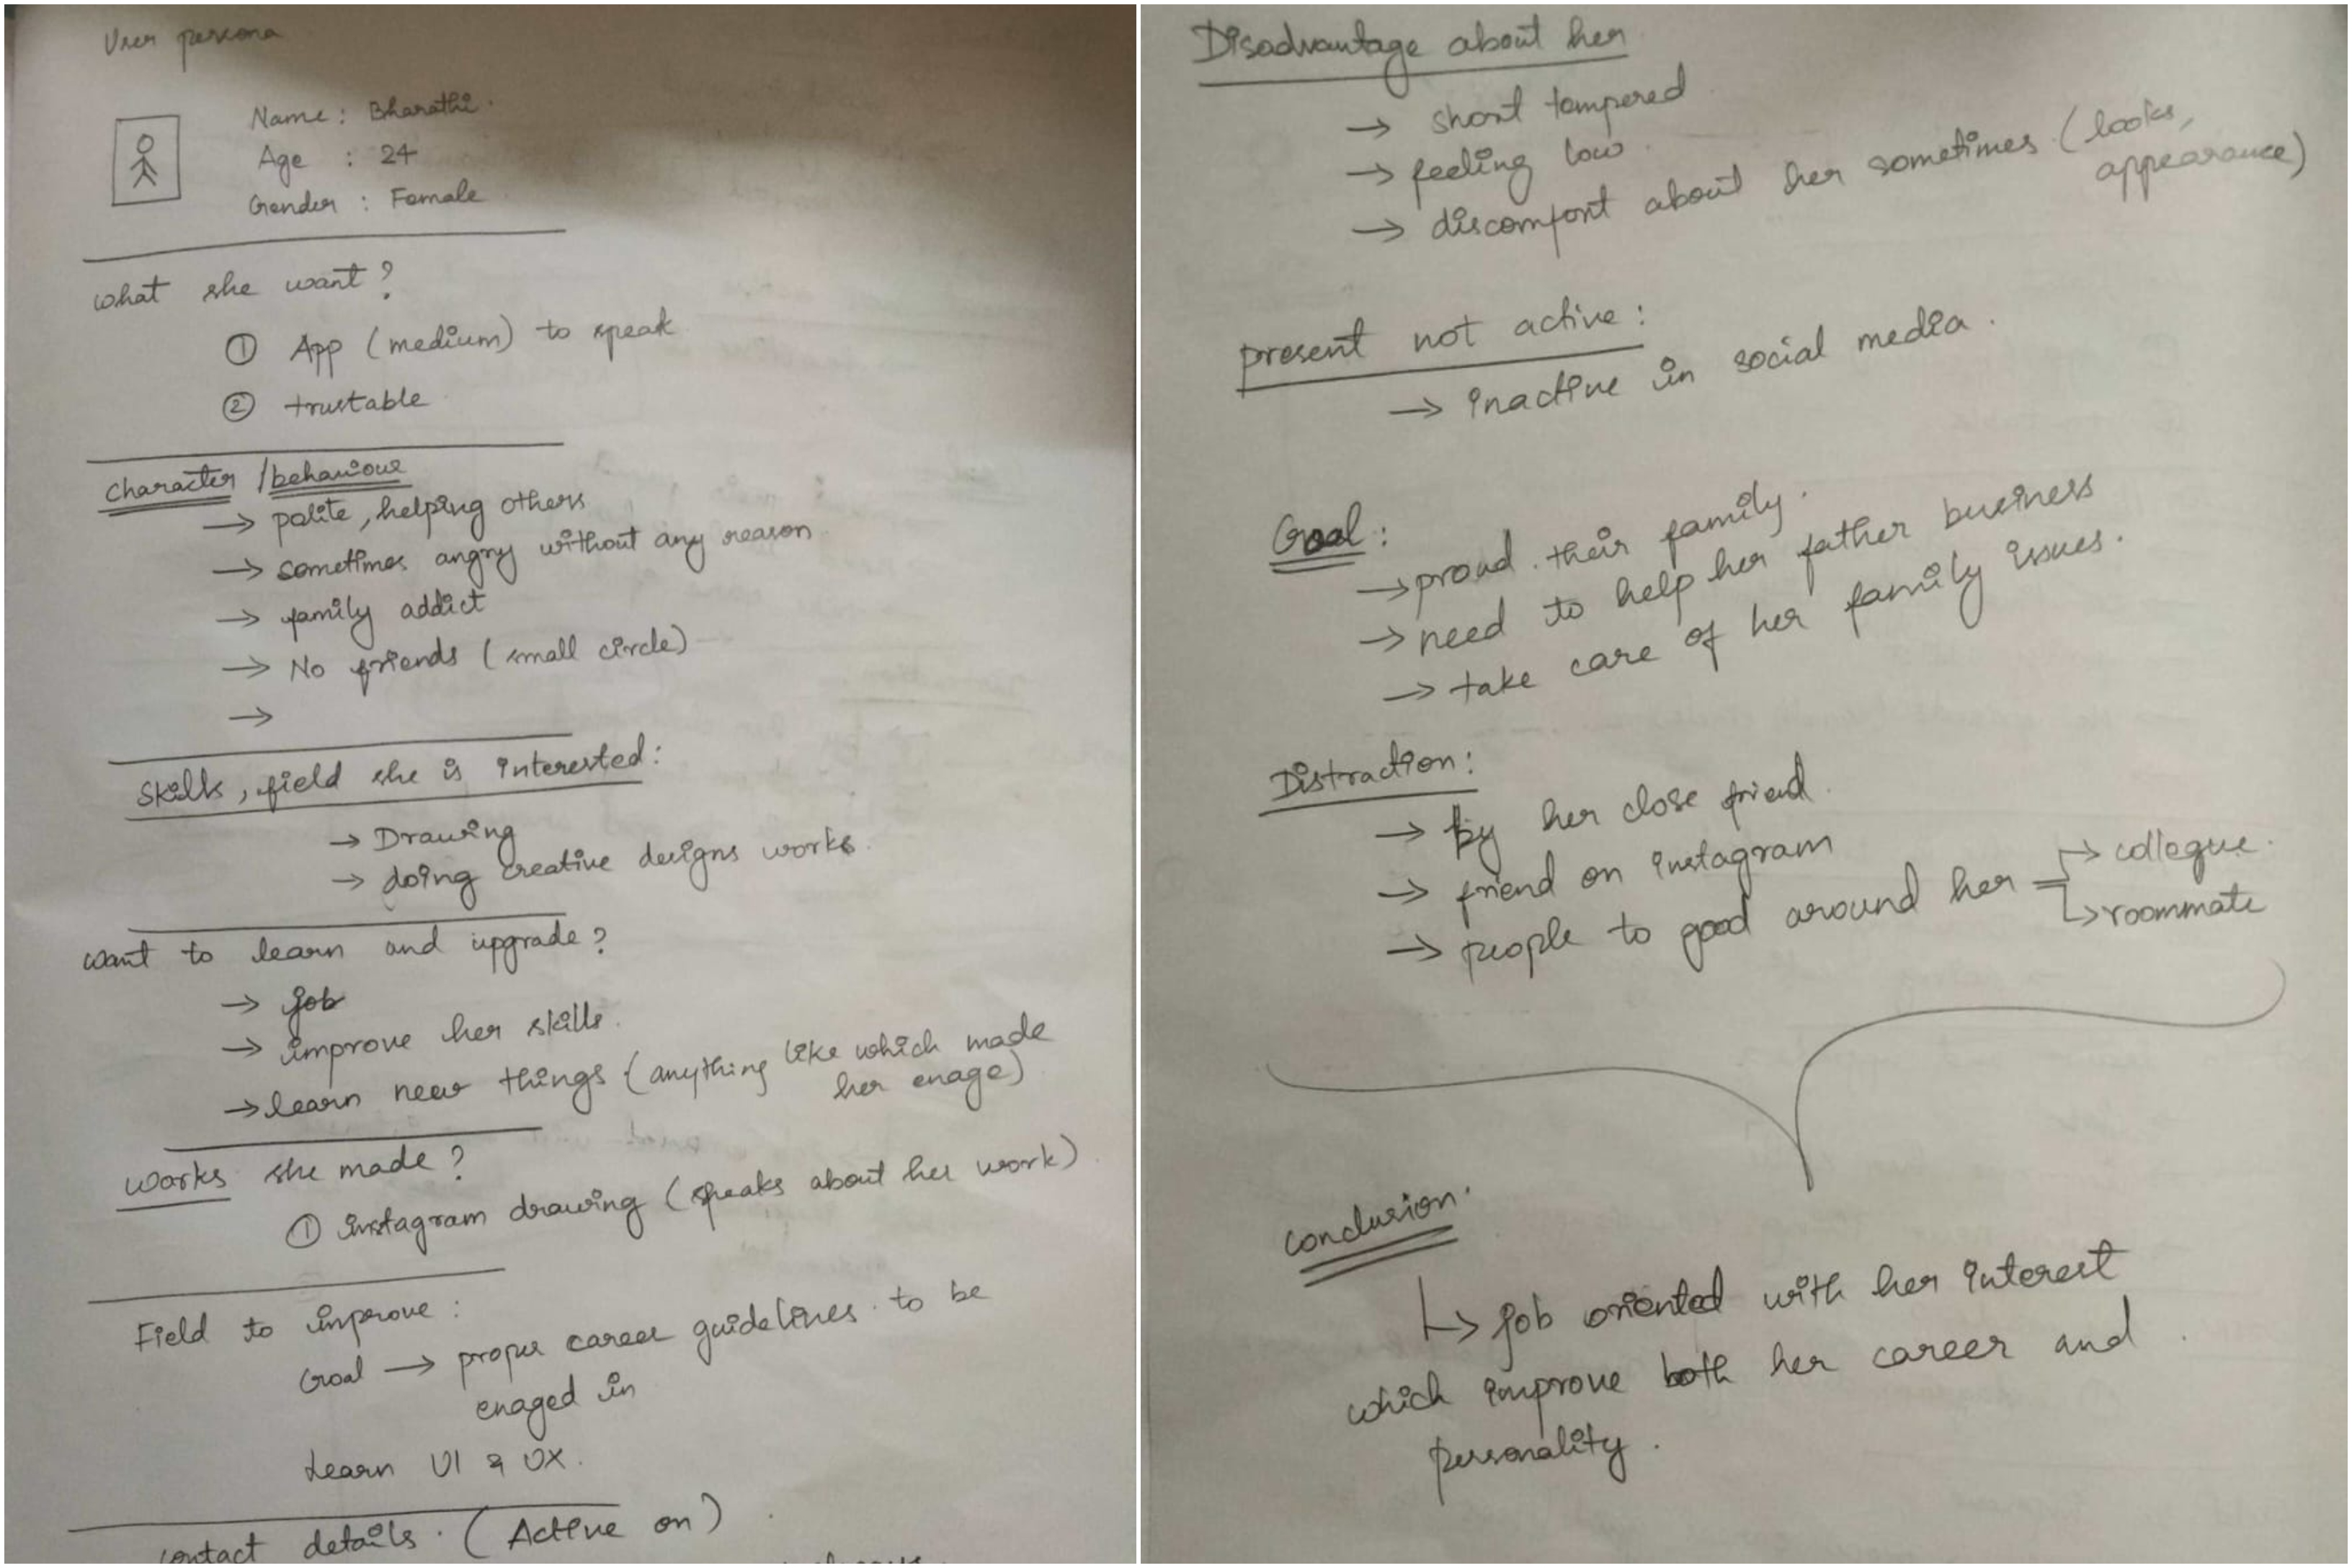 User persona
Name : Bharathi.
Age : 24
Gender : Female
what she want?
① App (medium) to speak
② trustable
character / behaviour
→ polite, helping others
→ sometimes angry without any reason
→ family addict
→ No friends (small circle)
→
Skills, field she is interested:
→ Drawing
→ doing creative designs works.
want to learn and upgrade?
→ job
→ improve her skills.
→ learn new things (anything like which made
her enage)
works she made?
① instagram drawing (speaks about her work)
Field to improve :
Goal → proper career guidelines to be
enaged in
Learn UI & UX.
contact details. (Active on)
Disadvantage about her
→ short tempered
→ feeling low
→ discomfort about her sometimes (looks,
appearance)
present not active :
→ inactive in social media.
Goal :
→ proud their family.
→ need to help her father business
→ take care of her family issues.
Distraction :
→ By her close friend.
→ friend on instagram
→ people to good around her → collegue.
→ roommate
conclusion.
→ job oriented with her interest
which improve both her career and
personality.